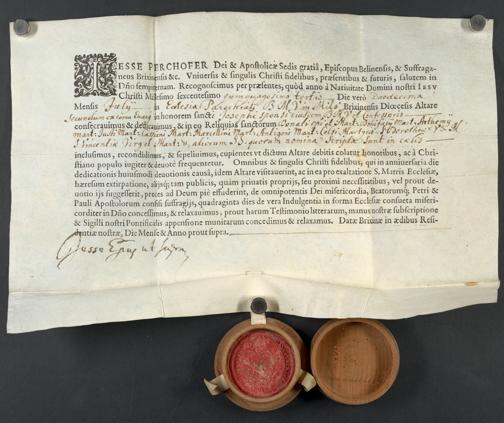 IESSE PERCHOFER Dei & Apostolicæ Sedis gratiâ, Episcopus Belinensis, & Suffraga-
neus Brixinensis &c. Vniversis & singulis Christi fidelibus, præsentibus & futuris, salutem in
Dño sempiternam. Recognoscimus per præsentes, quòd anno à Nativitate Domini nostri IESV
Christi Millesimo sexcentesimo tertio Die verò
Mensis July in Ecclesia B M V in Brixinensis Diœcesis Altare
in honorem sancti Josephi sponsi eiusdem B V
consecravimus & dedicavimus, & in eo Reliquias sanctorum Donati Mart
mart: Justi Mart: Mart: Marcellini Mart: Antigoni Mart: Celsi Mart:
Vincentiæ Virg: & Mart: & aliorum SS. quorum nomina scripta sunt in cælis
inclusimus, recondidimus, & sepelivimus, cupientes vt dictum Altare debitis colatur honoribus, ac à Chri-
stiano populo iugiter & devotè frequentetur. Omnibus & singulis Christi fidelibus, qui in anniversaria die
dedicationis huiusmodi devotionis causâ, idem Altare visitauerint, ac in ea pro exaltatione S. Matris Ecclesiæ,
hæresum extirpatione, alijsq; tam publicis, quàm priuatis proprijs, seu proximi necessitatibus, vel prout de-
uotio ijs suggesserit, preces ad Deum piè effuderint, de omnipotentis Dei misericordia, Beatorumq; Petri &
Pauli Apostolorum consisi suffragijs, quadraginta dies de vera Indulgentia in forma Ecclesiæ consueta miseri-
corditer in Dño concessimus, & relaxauimus, prout harum Testimonio litterarum, manus nostræ subscriptione
& Sigilli nostri Pontificalis appensione munitarum concedimus & relaxamus. Datæ Brixinæ in ædibus Resi-
dentiæ nostræ, Die Mense & Anno prout supra.
Jesse Epus ut supra